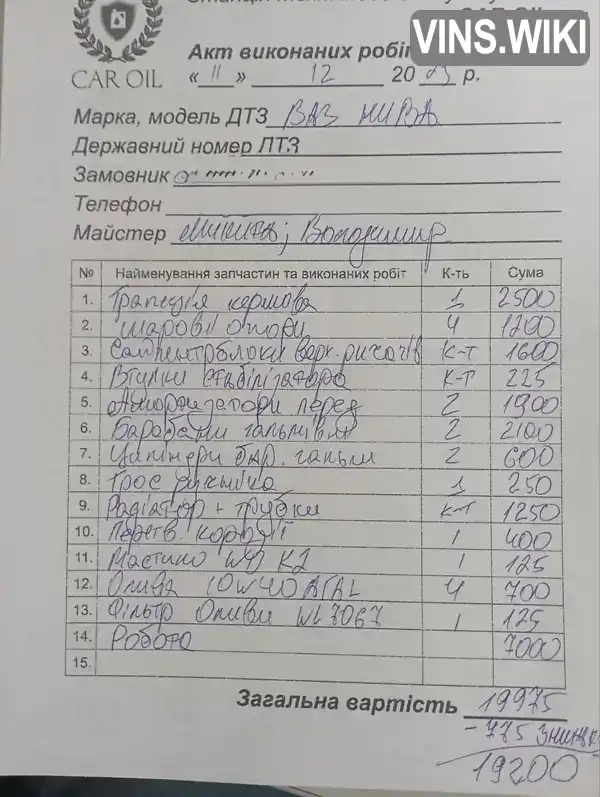 VINS.WIKI
CAR OIL
Акт виконаних робіт
« 11 » 12 20 23 р.
Марка, модель ДТЗ ВАЗ НИВА
Державний номер ДТЗ
Замовник
Телефон
Майстер Микита; Володимир
№ Найменування запчастин та виконаних робіт К-ть Сума
1. Трапеція кермова 1 2500
2. Шарові опори 4 1200
3. Сайлентрблоки верх. ричагів К-т 1600
4. Втулки стабілізатора К-т 225
5. Амортизатори перед 2 1900
6. Барабани гальмівні 2 2100
7. Циліндри бар. гальм 2 600
8. Трос ручніка 1 250
9. Радіатор + трубки К-т 1250
10. Перетв. корозії 1 400
11. Мастило K2 1 125
12. Олива 10W40 4 700
13. Фільтр Оливи WL7067 1 125
14. Робота 7000
15.
Загальна вартість 19975
- 775 знижка
19200